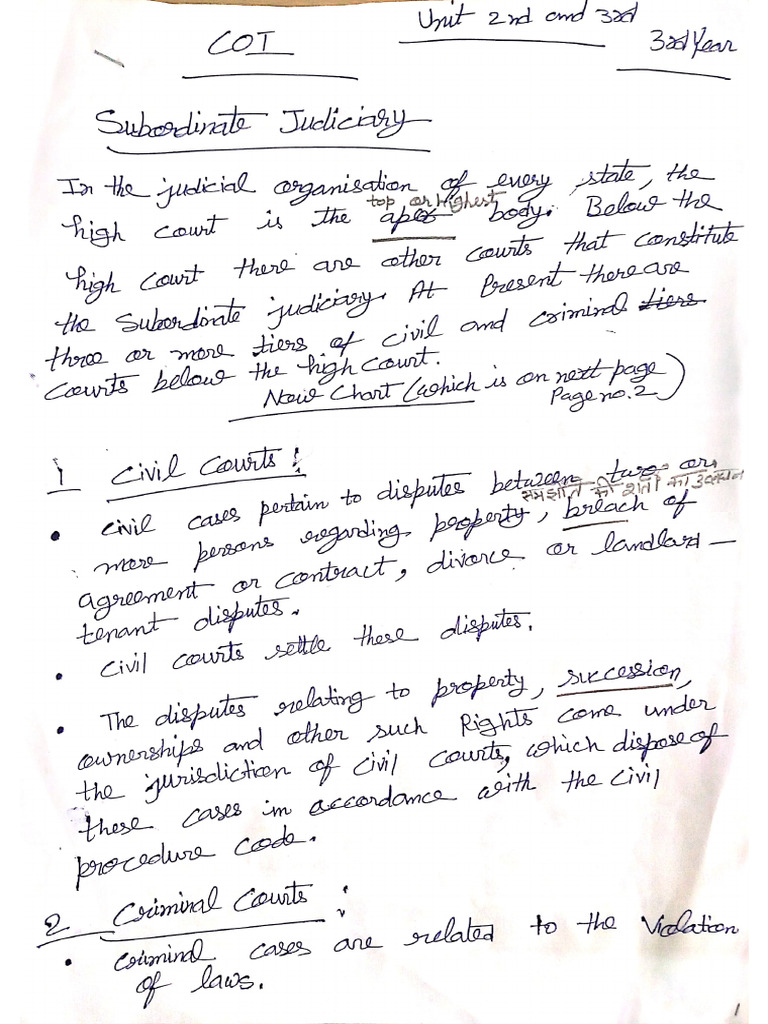 COI
Unit 2nd and 3rd
3rd Year
Subordinate Judiciary
In the judicial organisation of every state, the
top or Highest
high court is the apex body. Below the
high court there are other courts that constitute
the Subordinate judiciary. At Present there are
three or more tiers of civil and criminal tiers
Courts below the high Court.
Now Chart (which is on next page
Page no. 2)
1 Civil Courts :
• Civil cases pertain to disputes between two or
समझौते की शर्तों का उल्लंघन
more persons regarding property, breach of
agreement or contract, divorce or landlard-
tenant disputes.
• Civil courts settle these disputes.
• The disputes relating to property, succession,
ownerships and other such Rights come under
the jurisdiction of civil courts, which dispose of
these cases in accordance with the Civil
procedure code.
2 Criminal Courts :
• Criminal cases are related to the Violation
of laws.
1